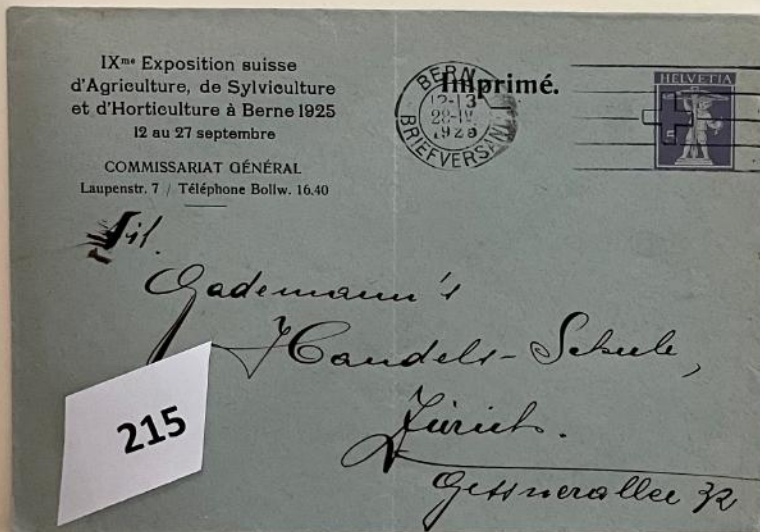 IXme Exposition suisse
d'Agriculture, de Sylviculture
et d'Horticulture à Berne 1925
12 au 27 septembre
COMMISSARIAT GÉNÉRAL
Laupenstr. 7 / Téléphone Bollw. 16.40
Imprimé.
BERN
12-13
28-IV.
BRIEFVERSAND
HELVETIA
Tit.
Gademann's
Handels-Schule,
Zürich.
Gessnerallee 32
215